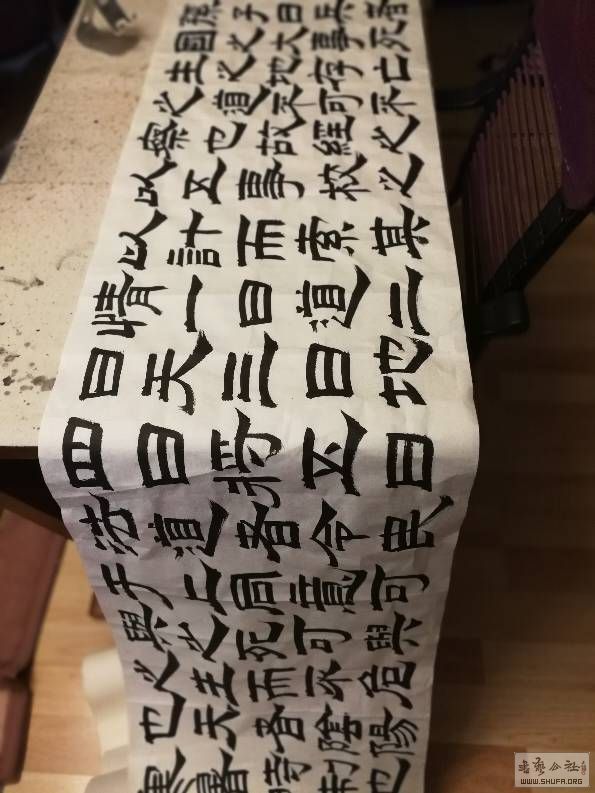 孫子曰兵者
國之大事死
生之地存亡
之道不可不
察也故經之
以五事校之
以計而索其
情一曰道二
曰天三曰地
四曰將五曰
法道者令民
于上同意可
與之死可與
之生而不危
也天者陰陽
寒暑時制也
WWW.SHUFA.ORG